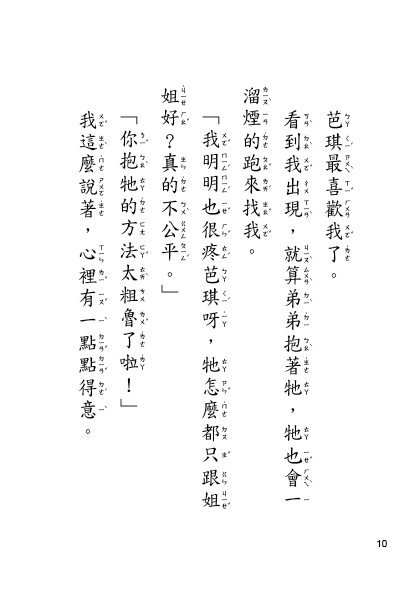 芭琪最喜歡我了。
看到我出現，就算弟弟抱著牠，牠也會一
溜煙的跑來找我。
「我明明也很疼芭琪呀，牠怎麼都只跟姐
姐好？真的不公平。」
「你抱牠的方法太粗魯了啦！」
我這麼說著，心裡有一點點得意。
10